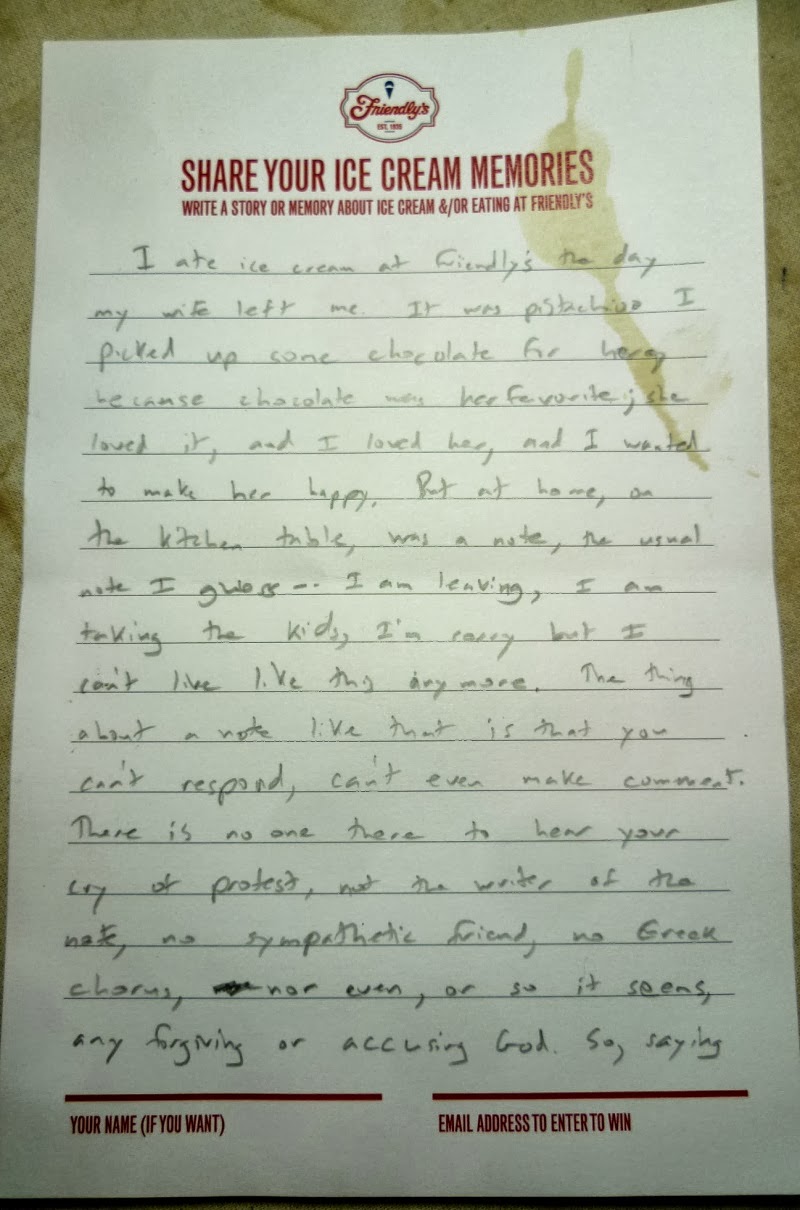 Friendly's
EST. 1935
SHARE YOUR ICE CREAM MEMORIES
WRITE A STORY OR MEMORY ABOUT ICE CREAM &/OR EATING AT FRIENDLY'S
I ate ice cream at Friendly's the day
my wife left me. It was pistachio. I
picked up some chocolate for her,
because chocolate was her favorite; she
loved it, and I loved her, and I wanted
to make her happy. But at home, on
the kitchen table, was a note, the usual
note I guess -- I am leaving, I am
taking the kids, I'm sorry but I
can't live like this anymore. The thing
about a note like that is that you
can't respond, can't even make comment.
There is no one there to hear your
cry of protest, not the writer of the
note, no sympathetic friend, no Greek
chorus, nor even, or so it seems,
any forgiving or accusing God. So, saying
YOUR NAME (IF YOU WANT)
EMAIL ADDRESS TO ENTER TO WIN